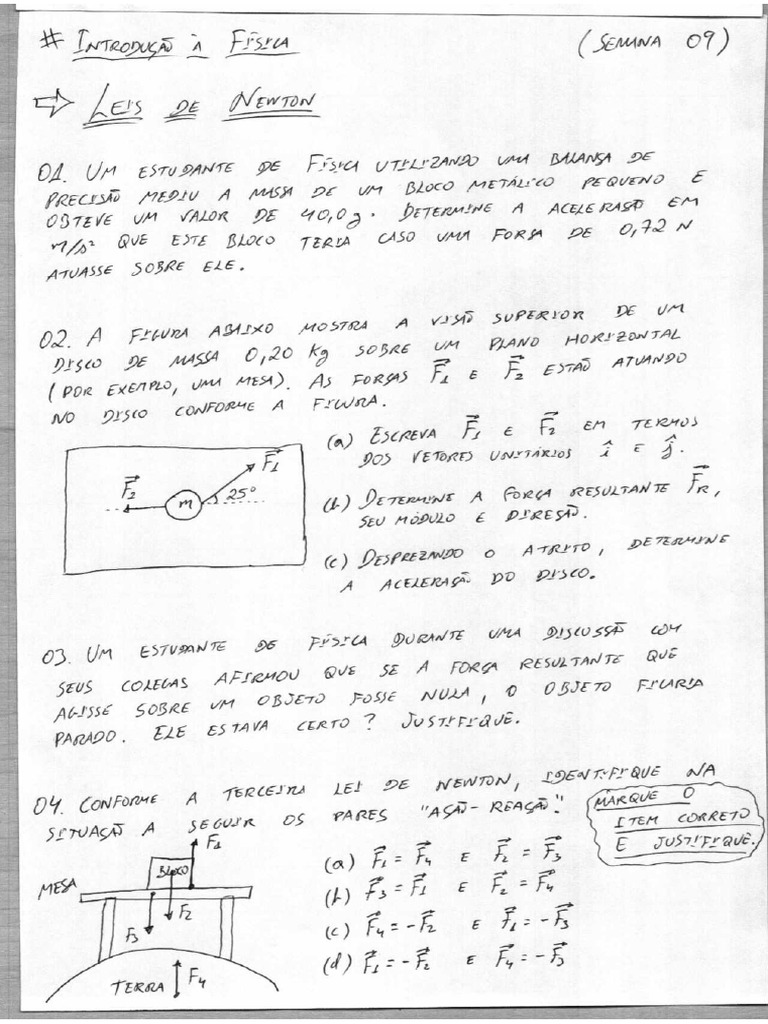 # INTRODUÇÃO À FÍSICA (SEMANA 09)
⇨ LEIS DE NEWTON
01. UM ESTUDANTE DE FÍSICA UTILIZANDO UMA BALANÇA DE
PRECISÃO MEDIU A MASSA DE UM BLOCO METÁLICO PEQUENO E
OBTEVE UM VALOR DE 40,0 g. DETERMINE A ACELERAÇÃO EM
m/s² QUE ESTE BLOCO TERIA CASO UMA FORÇA DE 0,72 N
ATUASSE SOBRE ELE.
02. A FIGURA ABAIXO MOSTRA A VISÃO SUPERIOR DE UM
DISCO DE MASSA 0,20 Kg SOBRE UM PLANO HORIZONTAL
(POR EXEMPLO, UMA MESA). AS FORÇAS F⃗1 E F⃗2 ESTÃO ATUANDO
NO DISCO CONFORME A FIGURA.
F⃗2 m 25° F⃗1
(a) ESCREVA F⃗1 E F⃗2 EM TERMOS
DOS VETORES UNITÁRIOS î E ĵ.
(b) DETERMINE A FORÇA RESULTANTE F⃗R,
SEU MÓDULO E DIREÇÃO.
(c) DESPREZANDO O ATRITO, DETERMINE
A ACELERAÇÃO DO DISCO.
03. UM ESTUDANTE DE FÍSICA DURANTE UMA DISCUSSÃO COM
SEUS COLEGAS AFIRMOU QUE SE A FORÇA RESULTANTE QUE
AGISSE SOBRE UM OBJETO FOSSE NULA, O OBJETO FICARIA
PARADO. ELE ESTAVA CERTO? JUSTIFIQUE.
04. CONFORME A TERCEIRA LEI DE NEWTON, IDENTIFIQUE NA
SITUAÇÃO A SEGUIR OS PARES "AÇÃO-REAÇÃO".
MARQUE O
ITEM CORRETO
E JUSTIFIQUE.
F⃗1
BLOCO
MESA
F⃗2
F⃗3
TERRA F⃗4
(a) F⃗1 = F⃗4 E F⃗2 = F⃗3
(b) F⃗3 = F⃗1 E F⃗2 = F⃗4
(c) F⃗4 = -F⃗2 E F⃗1 = -F⃗3
(d) F⃗1 = -F⃗2 E F⃗4 = -F⃗3